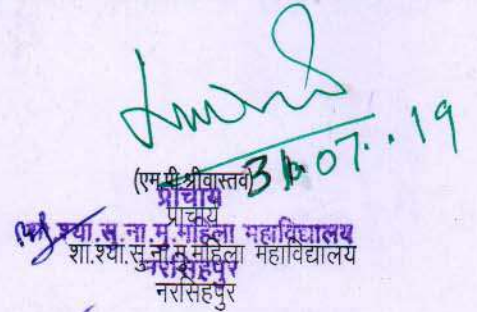 31.07.19
(एम.पी.श्रीवास्तव)
प्राचार्य
प्राचार्य
श्या.सु.ना.मु.महिला महाविद्यालय
शा.श्या.सु.ना.मु.महिला महाविद्यालय
नरसिंहपुर
नरसिंहपुर